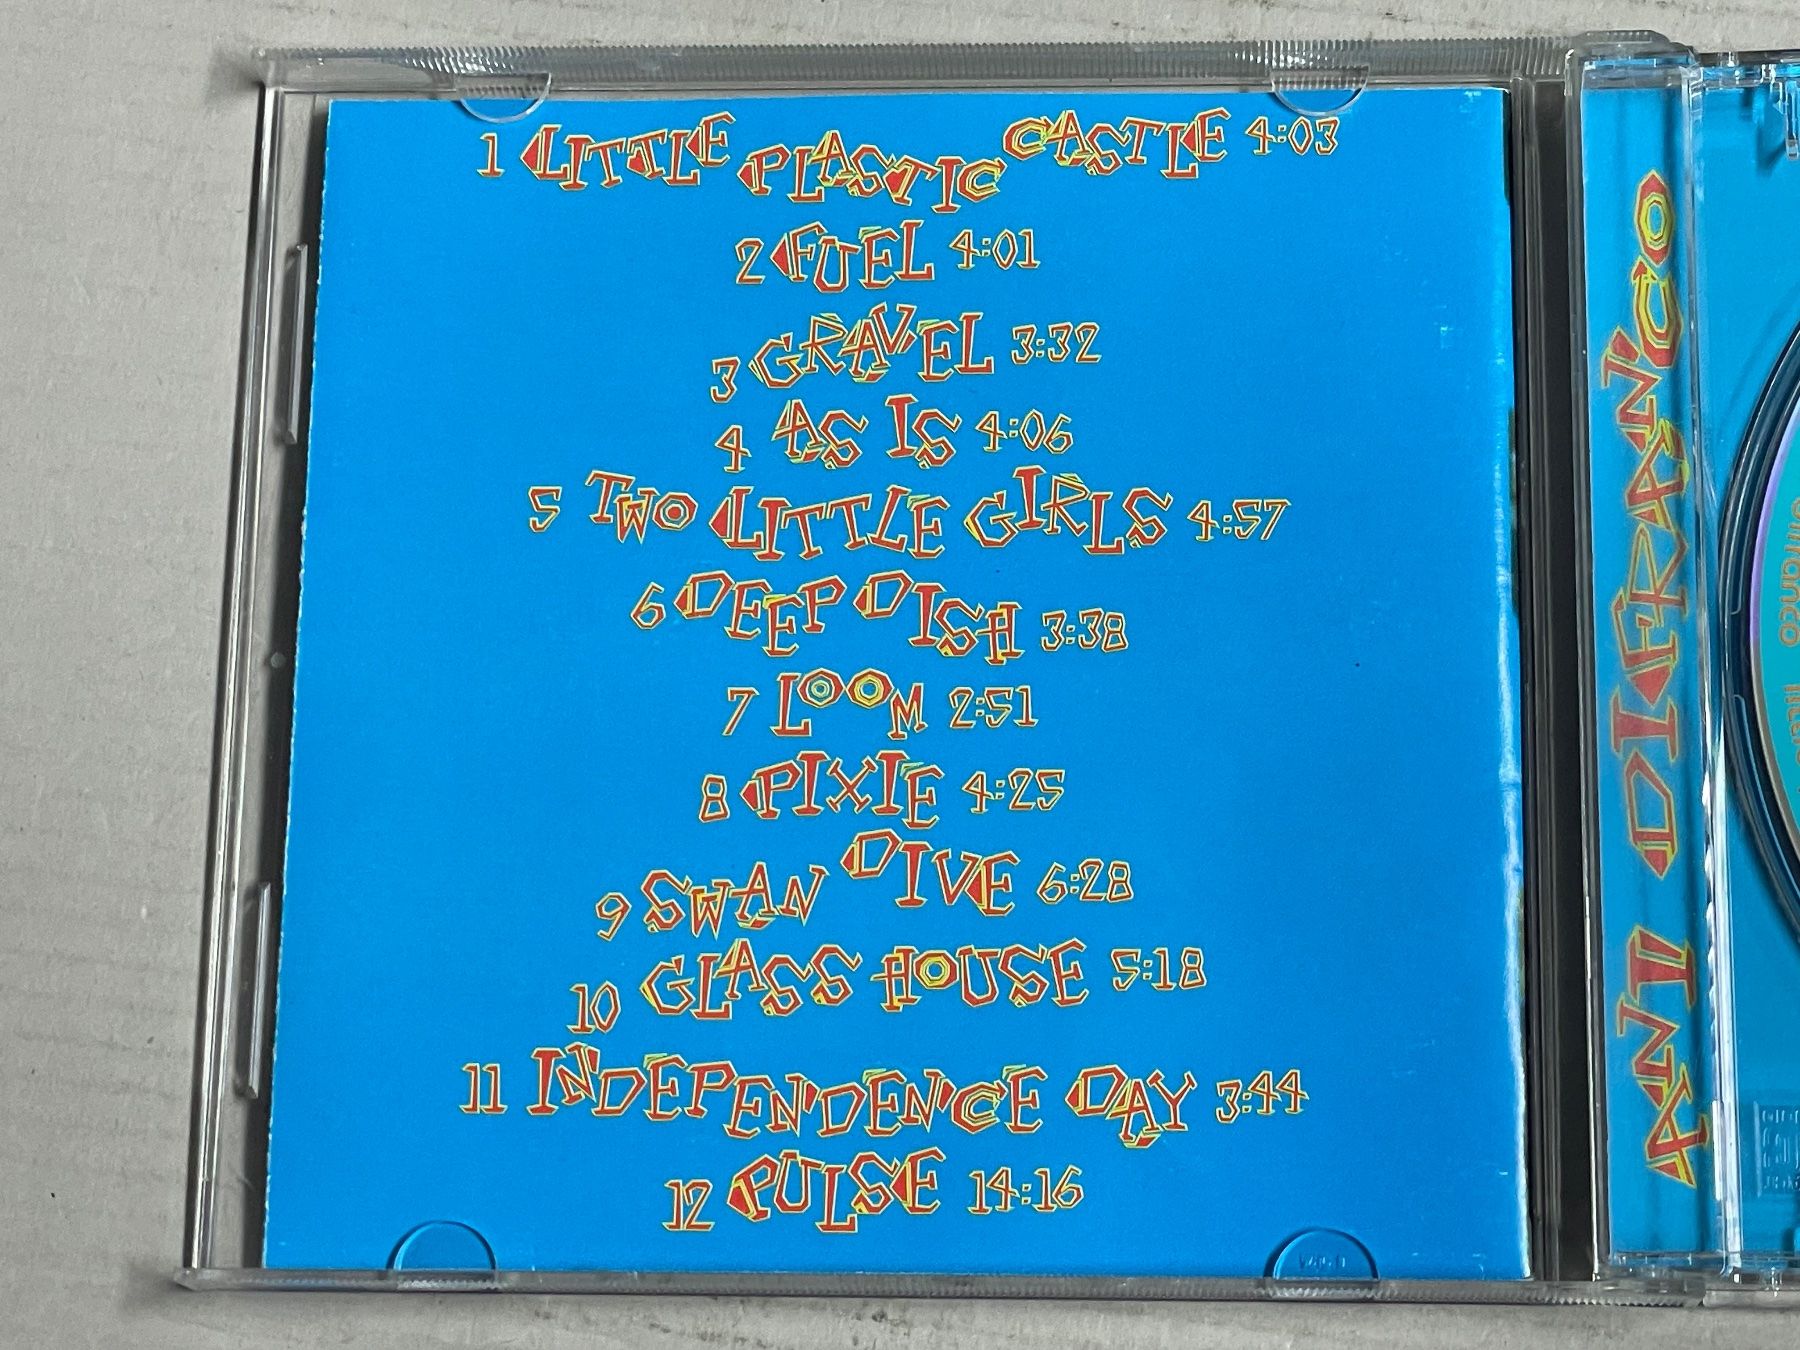 1 LITTLE PLASTIC CASTLE 4:03
2 FUEL 4:01
3 GRAVEL 3:32
4 AS IS 4:06
5 TWO LITTLE GIRLS 4:57
6 DEEP DISH 3:38
7 LOOM 2:51
8 PIXIE 4:25
9 SWAN DIVE 6:28
10 GLASS HOUSE 5:18
11 INDEPENDENCE DAY 3:44
12 PULSE 14:16
ANI DIFRANCO
difranco